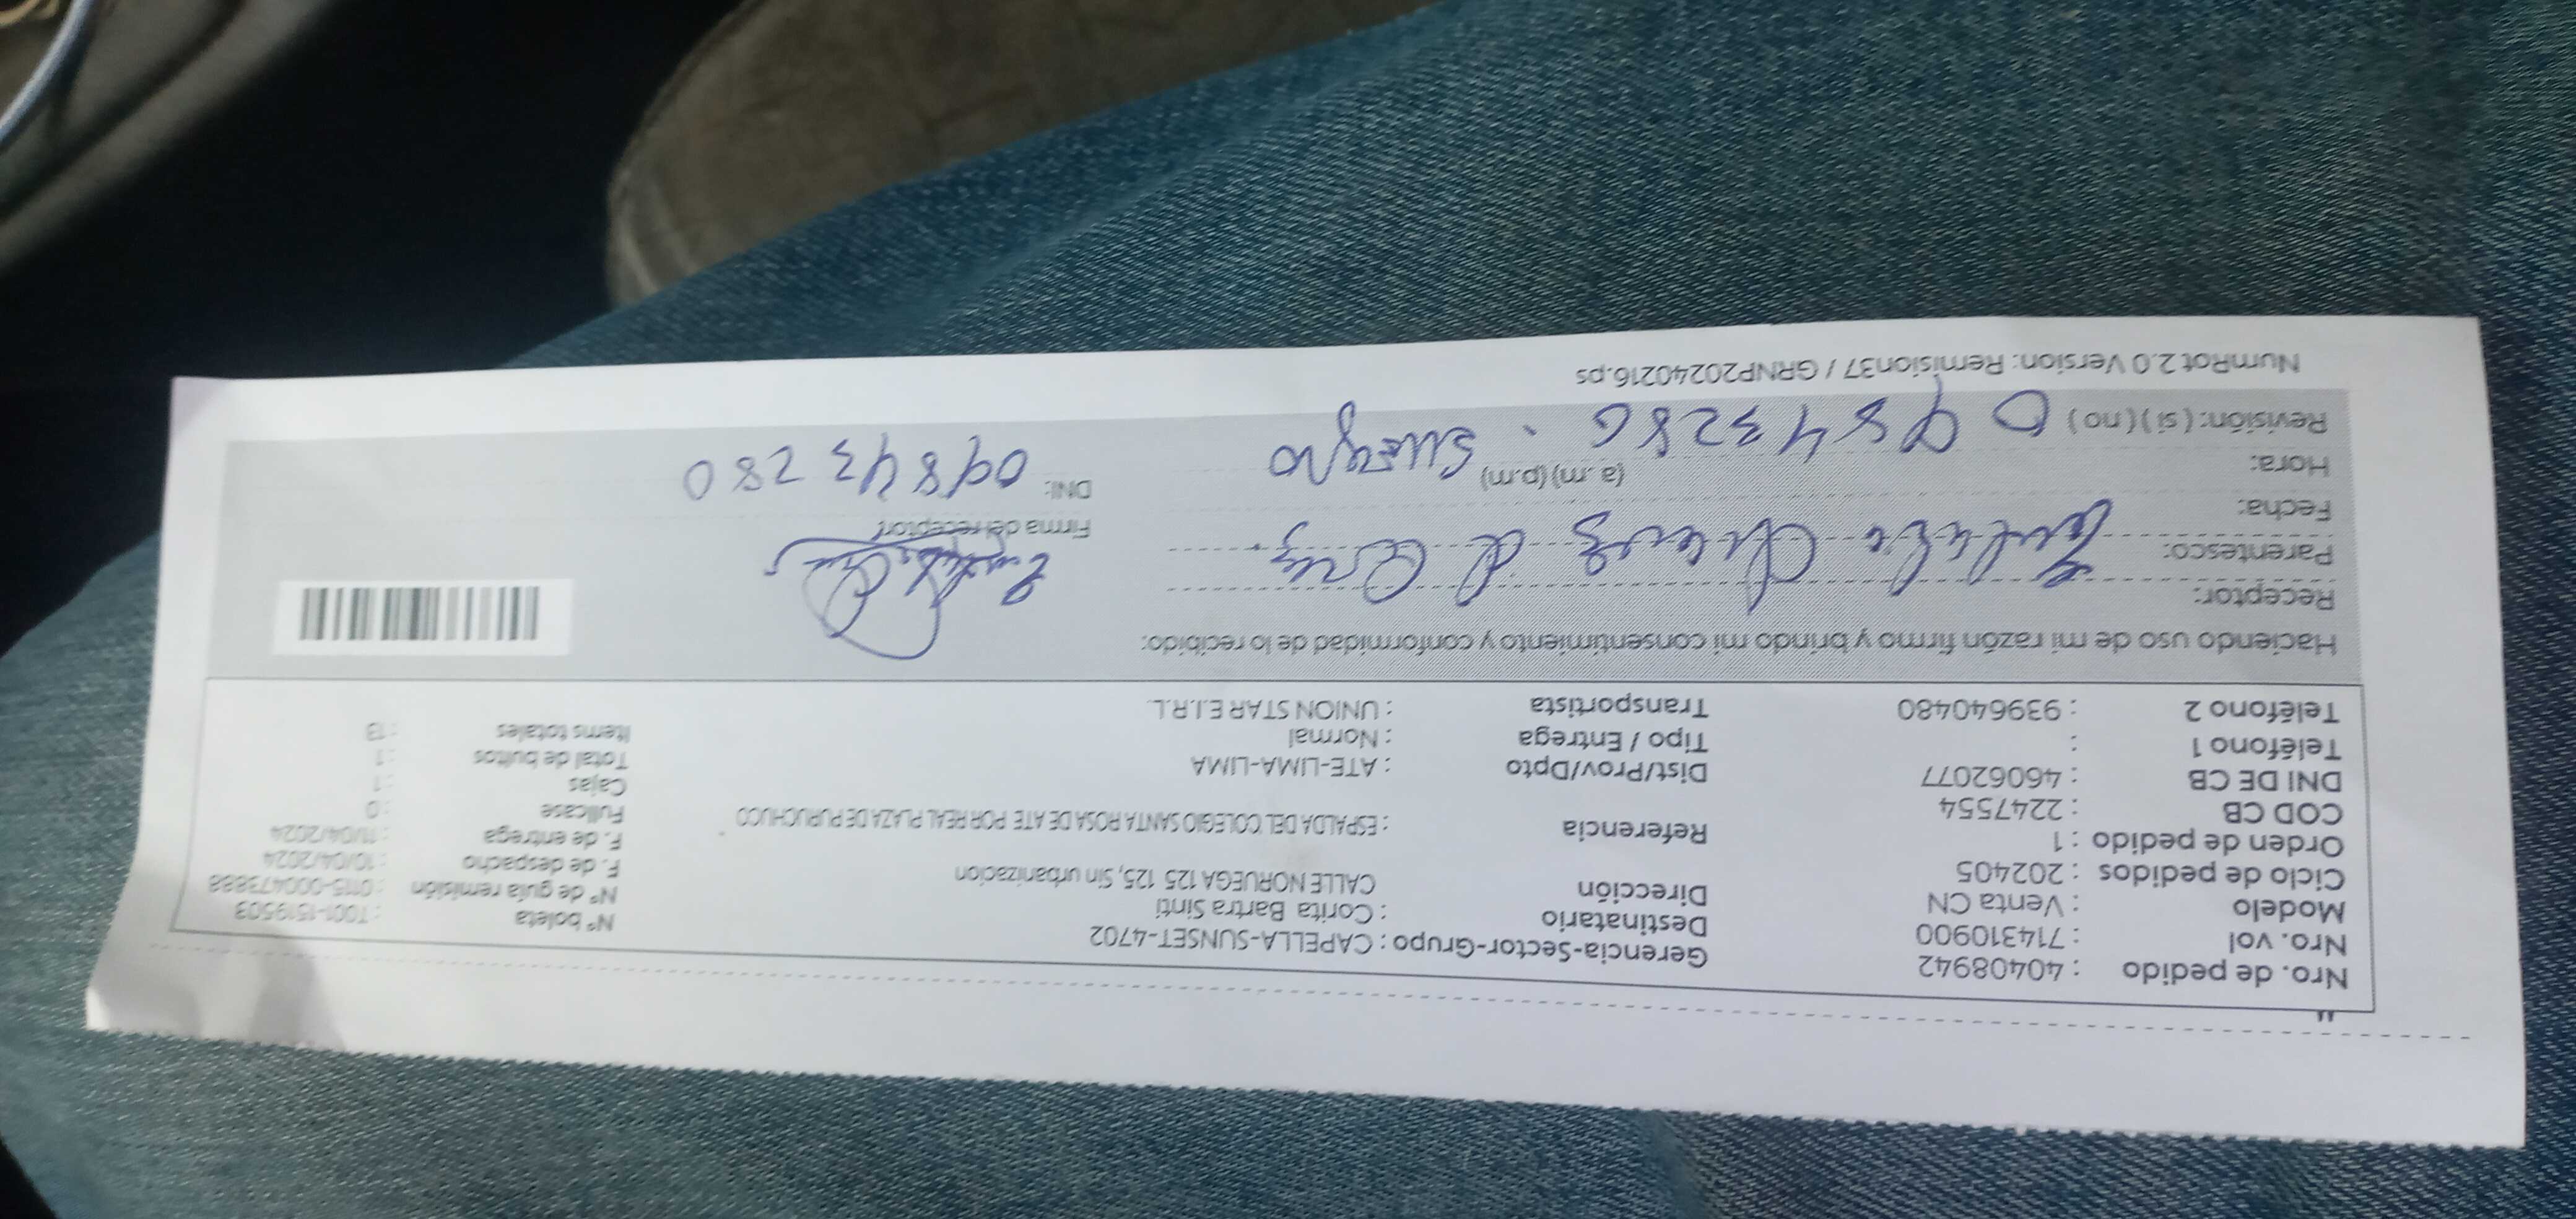 "
Nro. de pedido : 40408942
Nro. vol : 714310900
Modelo : Venta CN
Ciclo de pedidos : 202405
Orden de pedido : 1
COD CB : 2247554
DNI DE CB : 46062077
Teléfono 1 :
Teléfono 2 : 939640480
Gerencia-Sector-Grupo : CAPELLA-SUNSET-4702
Destinatario : Corita Bartra Sinti
Dirección CALLE NORUEGA 125 125, Sin urbanizacion
Referencia : ESPALDA DEL COLEGIO SANTA ROSA DE ATE POR REAL PLAZA DE PURUCHUCO
Dist/Prov/Dpto : ATE-LIMA-LIMA
Tipo / Entrega : Normal
Transportista : UNION STAR E.I.R.L.
N° boleta : T001-1519503
N° de guía remisión : 0115-000473888
F. de despacho : 10/04/2024
F. de entrega : 11/04/2024
Fullcase : 0
Cajas : 1
Total de bultos : 1
Items totales : 13
Haciendo uso de mi razón firmo y brindo mi consentimiento y conformidad de lo recibido:
Receptor:
Parentesco:
Fecha:
Hora: (a.m) (p.m)
Revisión: ( si ) ( no )
Firma del receptor
DNI: 09843280
NumRot 2.0 Version: Remision37 / GRNP20240216.ps